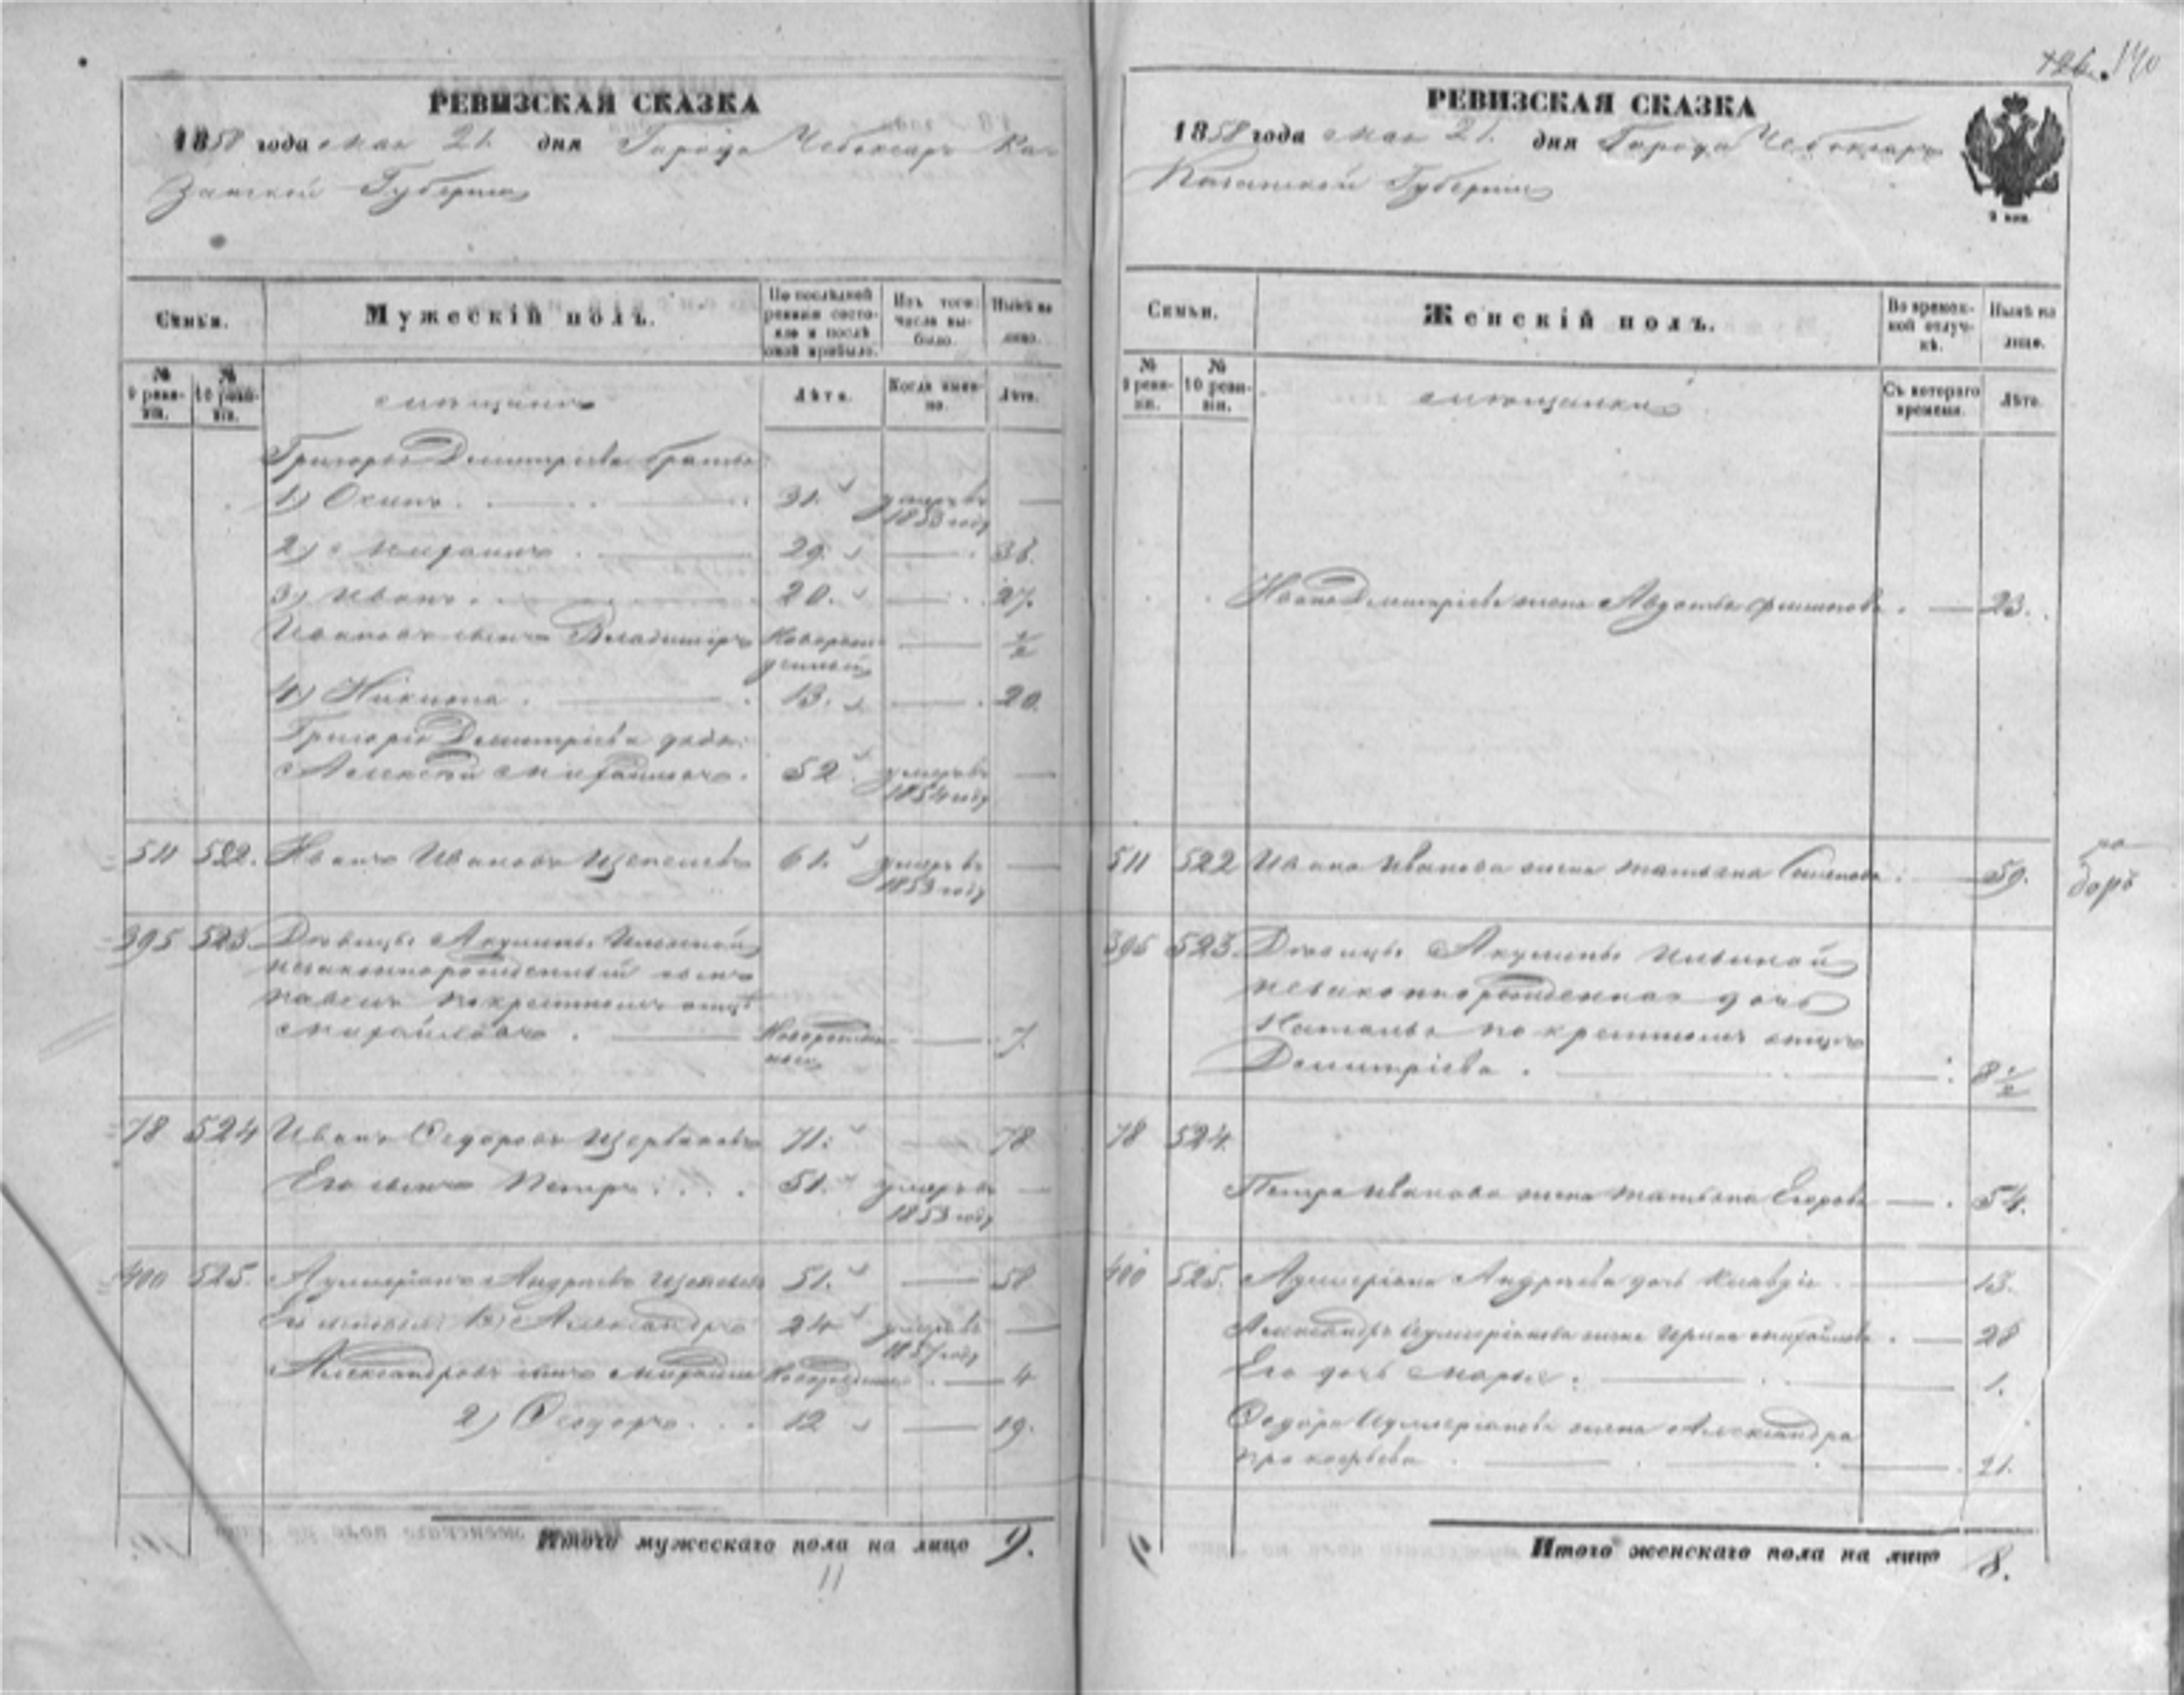 126. 140
РЕВИЗСКАЯ СКАЗКА
1858 года мая 21. дня Города Чебоксаръ Ка-
занской Губерніи
Семьи.
Мужескій полъ.
По послѣдней ревизіи состояло и послѣ оной прибыло.
Изъ того числа выбыло.
Нынѣ на лицо.
№ 9 ревизіи.
№ 10 ревизіи.
мѣщане
Лѣта.
Когда именно.
Лѣта.
Григорья Дмитріева братья
1) Осипъ. 31. умеръ въ 1853 году —
2) Михаилъ. 29. — 36.
3) Иванъ. 20. — 27.
Ивановъ сынъ Владимиръ Новорожденный — ½
4) Никита. 13. — 20.
Григорья Дмитріева дядя:
Алексей Михайловъ. 52. умеръ въ 1854 году —
511 522. Иванъ Ивановъ 61. умеръ въ 1853 году —
395 523. Девицы Акулины Ильиной
незаконнорожденный сынъ
Павелъ по крестномъ отцѣ
Михайловъ. Новорожденный — 7.
78 524 Иванъ Федоровъ Щербаковъ 71. — 78
Его сынъ Петръ. 51. умеръ въ 1853 году —
400 525. Андреевъ 51. — 58
Его сыновья: 1) Александръ 24 умеръ въ 1857 году —
Александровъ сынъ Михаилъ Новорожденный — 4
2) Федоръ. 12 — 19.
Итого мужескаго пола на лицо 9.
11
РЕВИЗСКАЯ СКАЗКА
1858 года мая 21. дня Города Чебоксаръ
Казанской Губерніи
2 коп.
Семьи.
Женскій полъ.
Во временной отлучкѣ.
Нынѣ на лицо.
№ 9 ревизіи.
№ 10 ревизіи.
мѣщанки
Съ котораго времени.
Лѣта.
Ивана Дмитріева жена Авдотья — 23.
511 522 Ивана Иванова жена Татьяна Семенова. — 59.
395 523. Девицы Акулины Ильиной
незаконнорожденная дочь
Наталья по крестномъ отцѣ
Дмитріева. — 8 ½
78 524.
Петра Иванова жена Татьяна Егорова — 54.
400 525. Андреева дочь Клавдія — 13.
Александра жена Ирина Михайлова. — 28
Его дочь Марья. — 1.
Федора жена Александра
Прокофьева. — 21.
Итого женскаго пола на лицо 8.